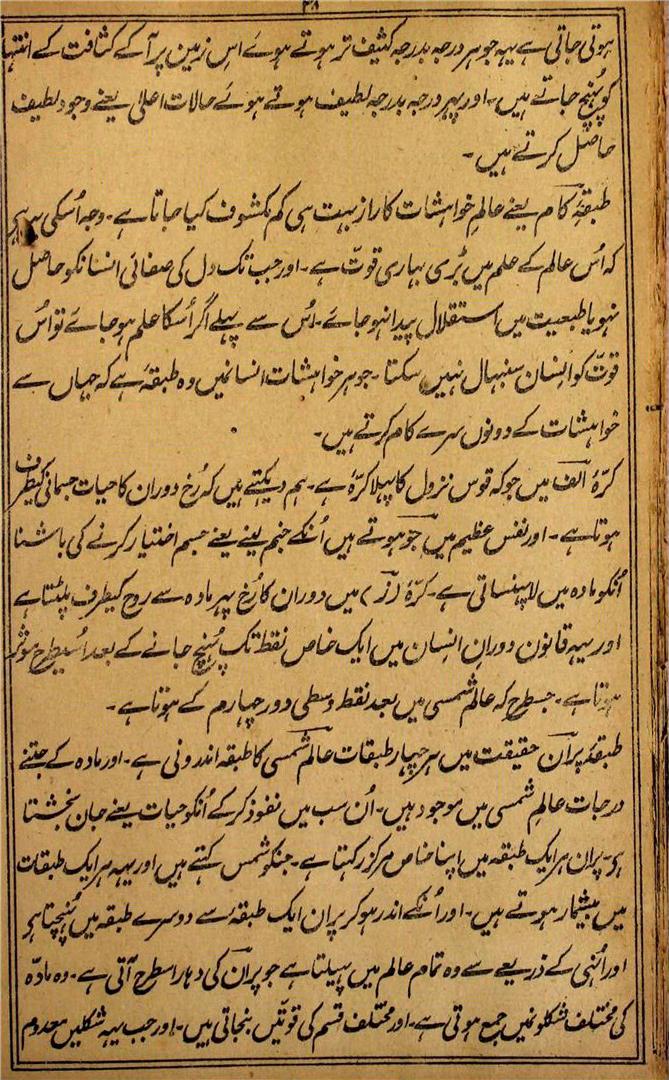 ۳۸
ہوتی جاتی ہے یہہ جوہر درجہ بدرجہ کثیف تر ہوتے ہوئے اس زمین پر آکے کثافت کے انتہا
کو پُہنچ جاتے ہیں ۔ اور پہر درجہ بدرجہ لطیف ہوتے ہوئے حالات اعلیٰ یعنے وجود لطیف
حاصل کرتے ہیں ۔
طبقۂ کام یعنے عالم خواہشات کا راز بہت ہی کم مکشوف کیا جاتا ہے ۔ وجہ اُسکی یہہ ہے
کہ اُس عالم کے علم میں بڑی بہاری قوت ہے ۔ اور جب تک دل کی صفائی انسانکو حاصل
نہو یا طبعیت میں استقلال پیدا نہو جائے ۔ اُس سے پہلے اگر اُسکا علم ہو جائے تو اُس
قوت کو انسان سنبہال نہیں سکتا ۔ جوہر خواہشات انسانمیں وہ طبقہ ہے کہ جہاں سے
خواہشات کے دونوں سرے کام کرتے ہیں ۔
کرّۂ الف میں جو کہ قوس نزول کا پہلا کرّہ ہے ۔ ہم دیکہتے ہیں کہ رُخ دوران کا حیات جسمانی کیطرف
ہوتا ہے ۔ اور نفس عظیم میں جو ہوتے ہیں اُنکے جنم لینے یعنے جسم اختیار کرنے کی باشنا
اُنکو مادہ میں لا پہنساتی ہے ۔ کرّۂ (ز) میں دوران کا رُخ پہر مادہ سے روح کیطرف پلٹتا ہے
اور یہہ قانون دوران انسان میں ایک خاص نقطہ تک پُہنچ جانے کے بعد اُسیطرح مؤثر
ہوتا ہے ۔ جسطرح کہ عالم شمسی میں بعد نقطہ وسطی دور چہارم کے ہوتا ہے ۔
طبقۂ پران حقیقت میں ہر چہار طبقات عالم شمسی کا طبقہ اندرونی ہے ۔ اور مادہ کے جتنے
درجات عالم شمسی میں موجود ہیں ۔ اُن سب میں نفوذ کرکے اُنکو حیات یعنے جان بخشتا
ہے ۔ پران ہر ایک طبقہ میں اپنا خاص مرکز رکہتا ہے ۔ جنکو شمس کہتے ہیں اور یہہ ہر ایک طبقات
میں بیشمار ہوتے ہیں ۔ اور اُنکے اندر ہو کر پران ایک طبقۂ سے دوسرے طبقہ میں پُہنچتا ہے
اور اُنہی کے ذریعے سے وہ تمام عالم میں پہیلتا ہے جو پران کی دہار اسطرح آتی ہے ۔ وہ مادّہ
کی مختلف شکلونمیں جمع ہوتی ہے ۔ اور مختلف قسم کی قوتیں بنجاتی ہیں ۔ اور جب یہہ شکلیں معدوم